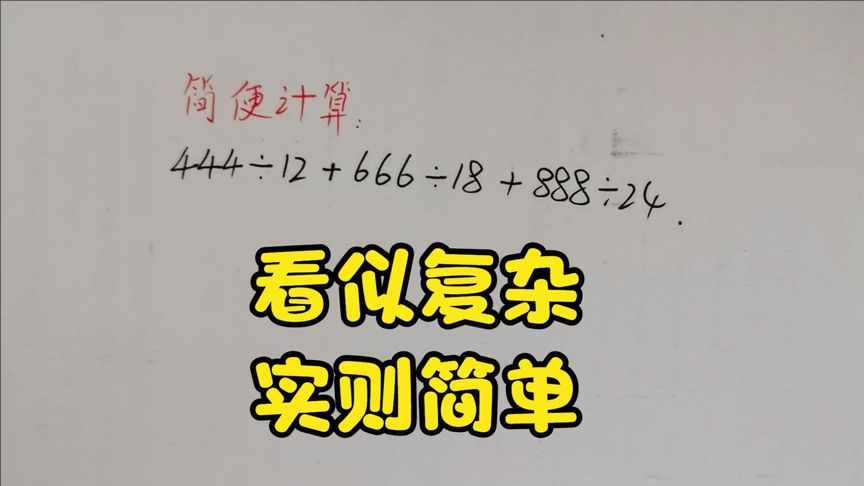 简便计算:
444÷12+666÷18+888÷24.
看似复杂
实则简单